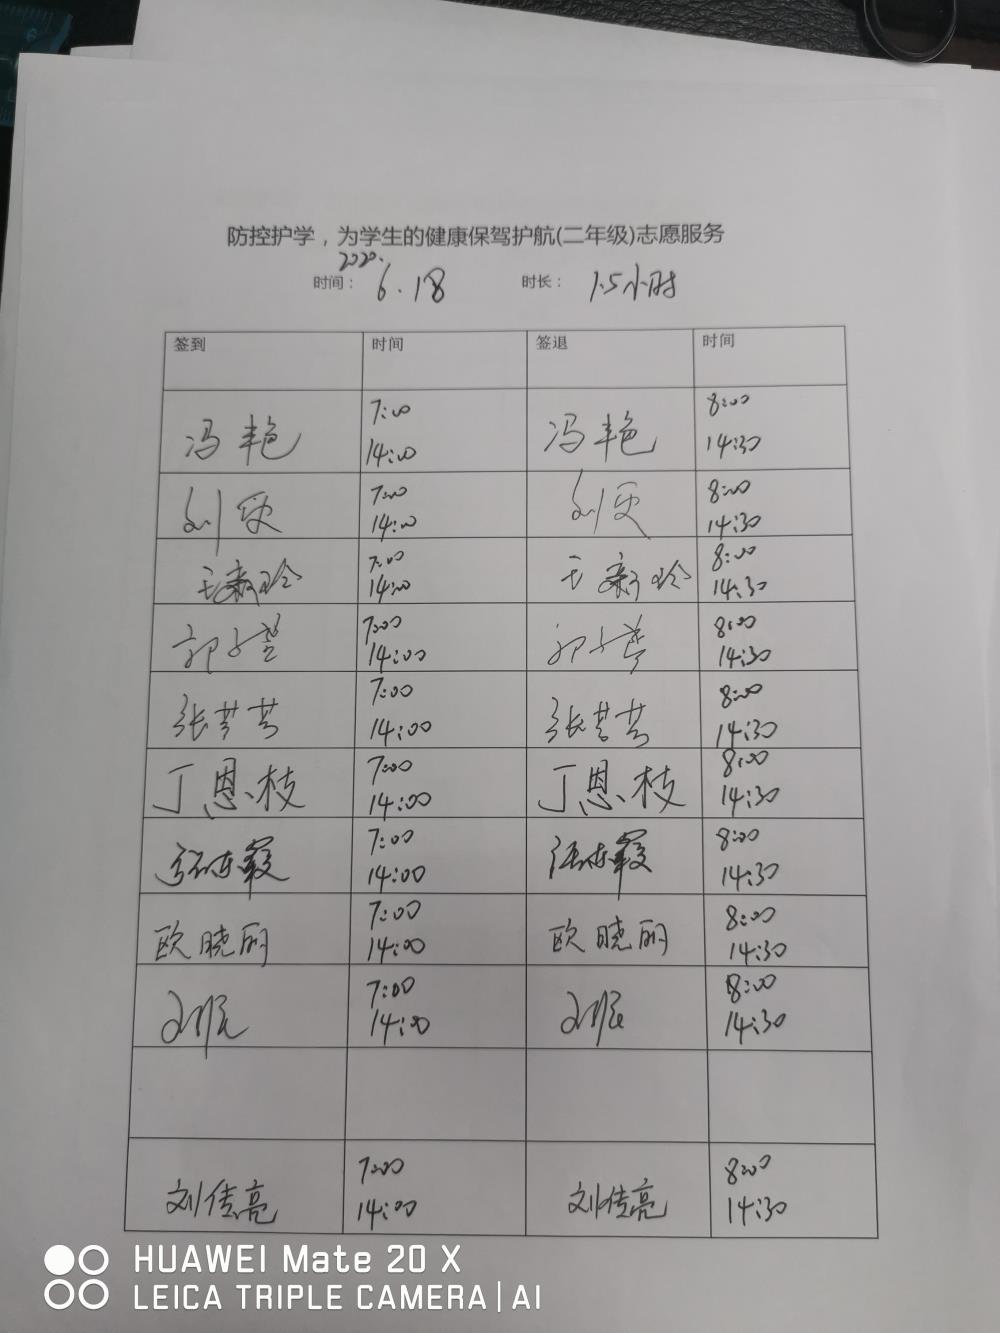 防控护学，为学生的健康保驾护航(二年级)志愿服务
2020.
时间： 6.18 时长： 1.5小时
签到 时间 签退 时间
冯艳 7:00 冯艳 8:00
14:00 14:30
刘 7:00 刘 8:00
14:00 14:30
王新玲 7:00 王新玲 8:00
14:00 14:30
郭 7:00 郭 8:00
14:00 14:30
张芳芳 7:00 张芳芳 8:00
14:00 14:30
丁恩枝 7:00 丁恩枝 8:00
14:00 14:30
霞 7:00 霞 8:00
14:00 14:30
欧晓丽 7:00 欧晓丽 8:00
14:00 14:30
7:00 8:00
14:00 14:30
刘佳亮 7:00 刘佳亮 8:00
14:00 14:30
HUAWEI Mate 20 X
LEICA TRIPLE CAMERA | AI